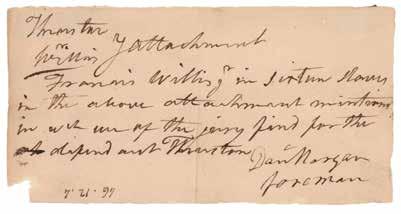 Thruston
vs Willis } attachment
Francis Willis jr in Sixteen Slaves
in the above attachment mentioned
in wch we of the jury find for the
defendant Thruston
Danl Morgan
foreman